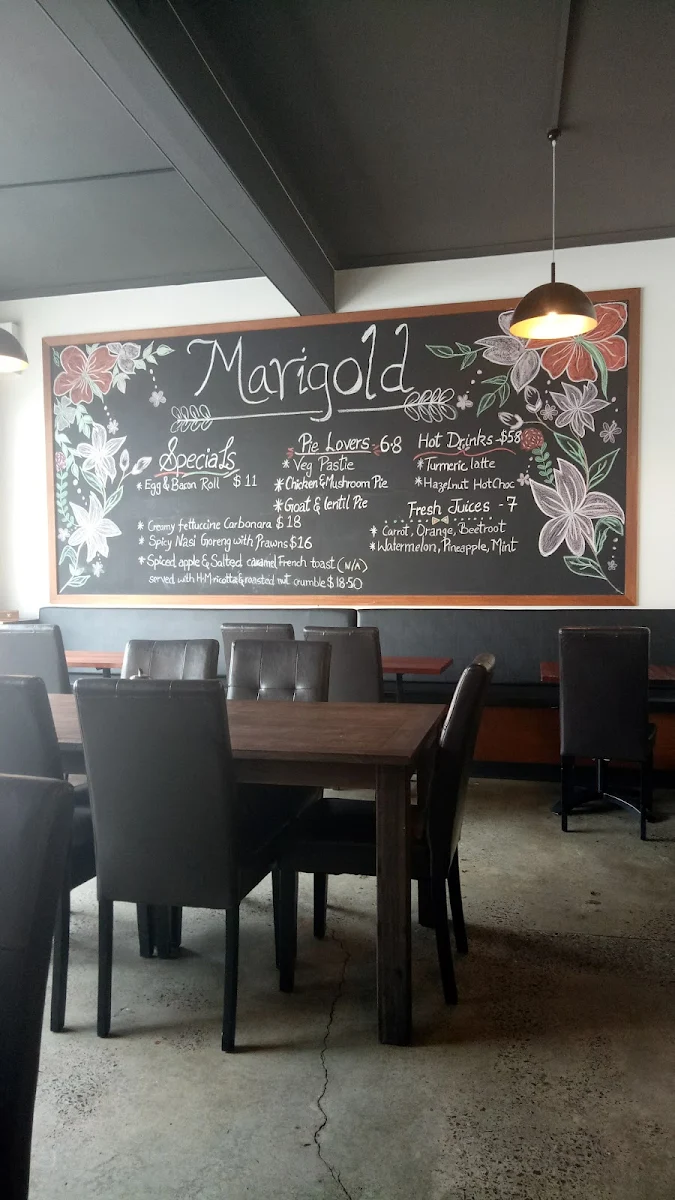 Marigold
Specials
* Egg & Bacon Roll $ 11
* Creamy fettuccine Carbonara $ 18
* Spicy Nasi Goreng with Prawns $ 16
* Spiced apple & Salted caramel French toast (N/A)
served with H.M ricotta & roasted nut crumble $ 18.50
Pie Lovers - 6.8
* Veg Pastie
* Chicken & Mushroom Pie
* Goat & lentil Pie
Hot Drinks - $58
* Turmeric latte
* Hazelnut HotChoc
Fresh Juices - 7
* Carrot, Orange, Beetroot
* Watermelon, Pineapple, Mint